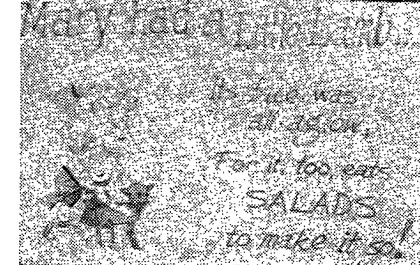 Mary had a Little Lamb
Its face was
all aglow,
For it too, eats
SALADS
to make it so!